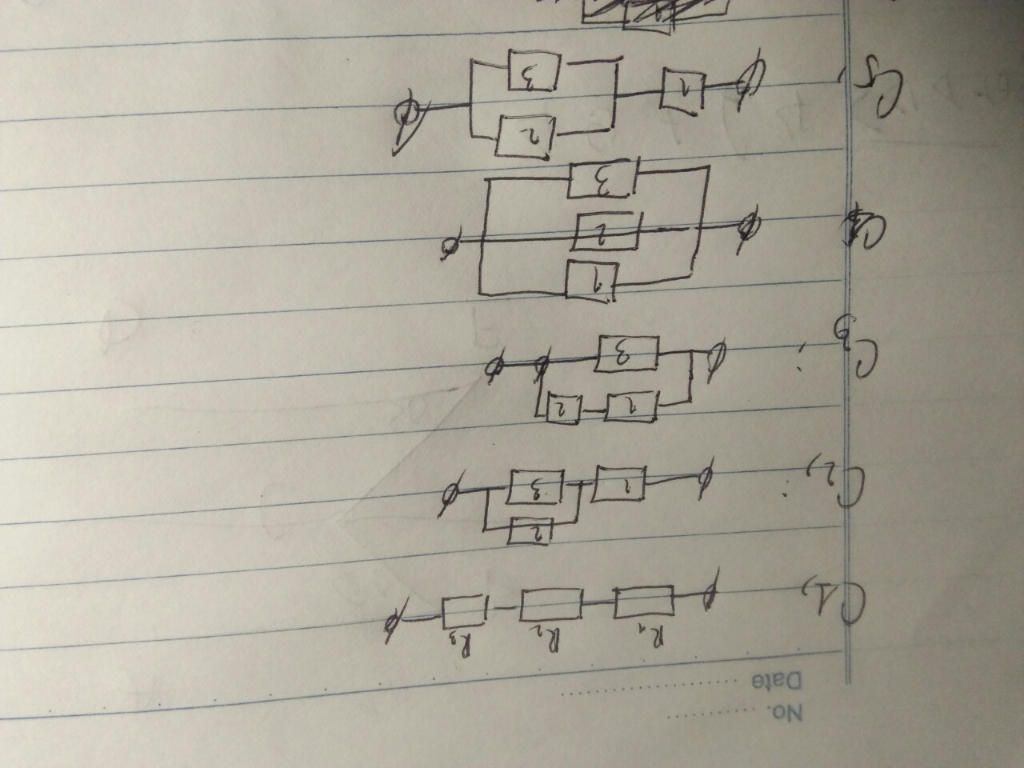 No. ..............
Date ..................
R1 R2 R3
C1,
2
C2, 1 3
1 2
C3 3
1
C4 2
3
2
C5, 1
3